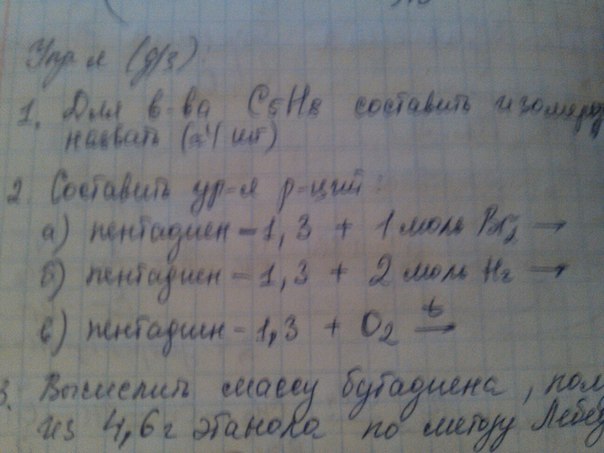 Упр-я (д/з):
1. Для в-ва C5H8 составить изомеры,
назвать (4 шт)
2. Составить ур-я р-ций:
а) пентадиен-1,3 + 1 моль Br2 →
б) пентадиен-1,3 + 2 моль H2 →
в) пентадиен-1,3 + O2 t→
3. Вычислить массу бутадиена,
из 4,6 г этанола по методу